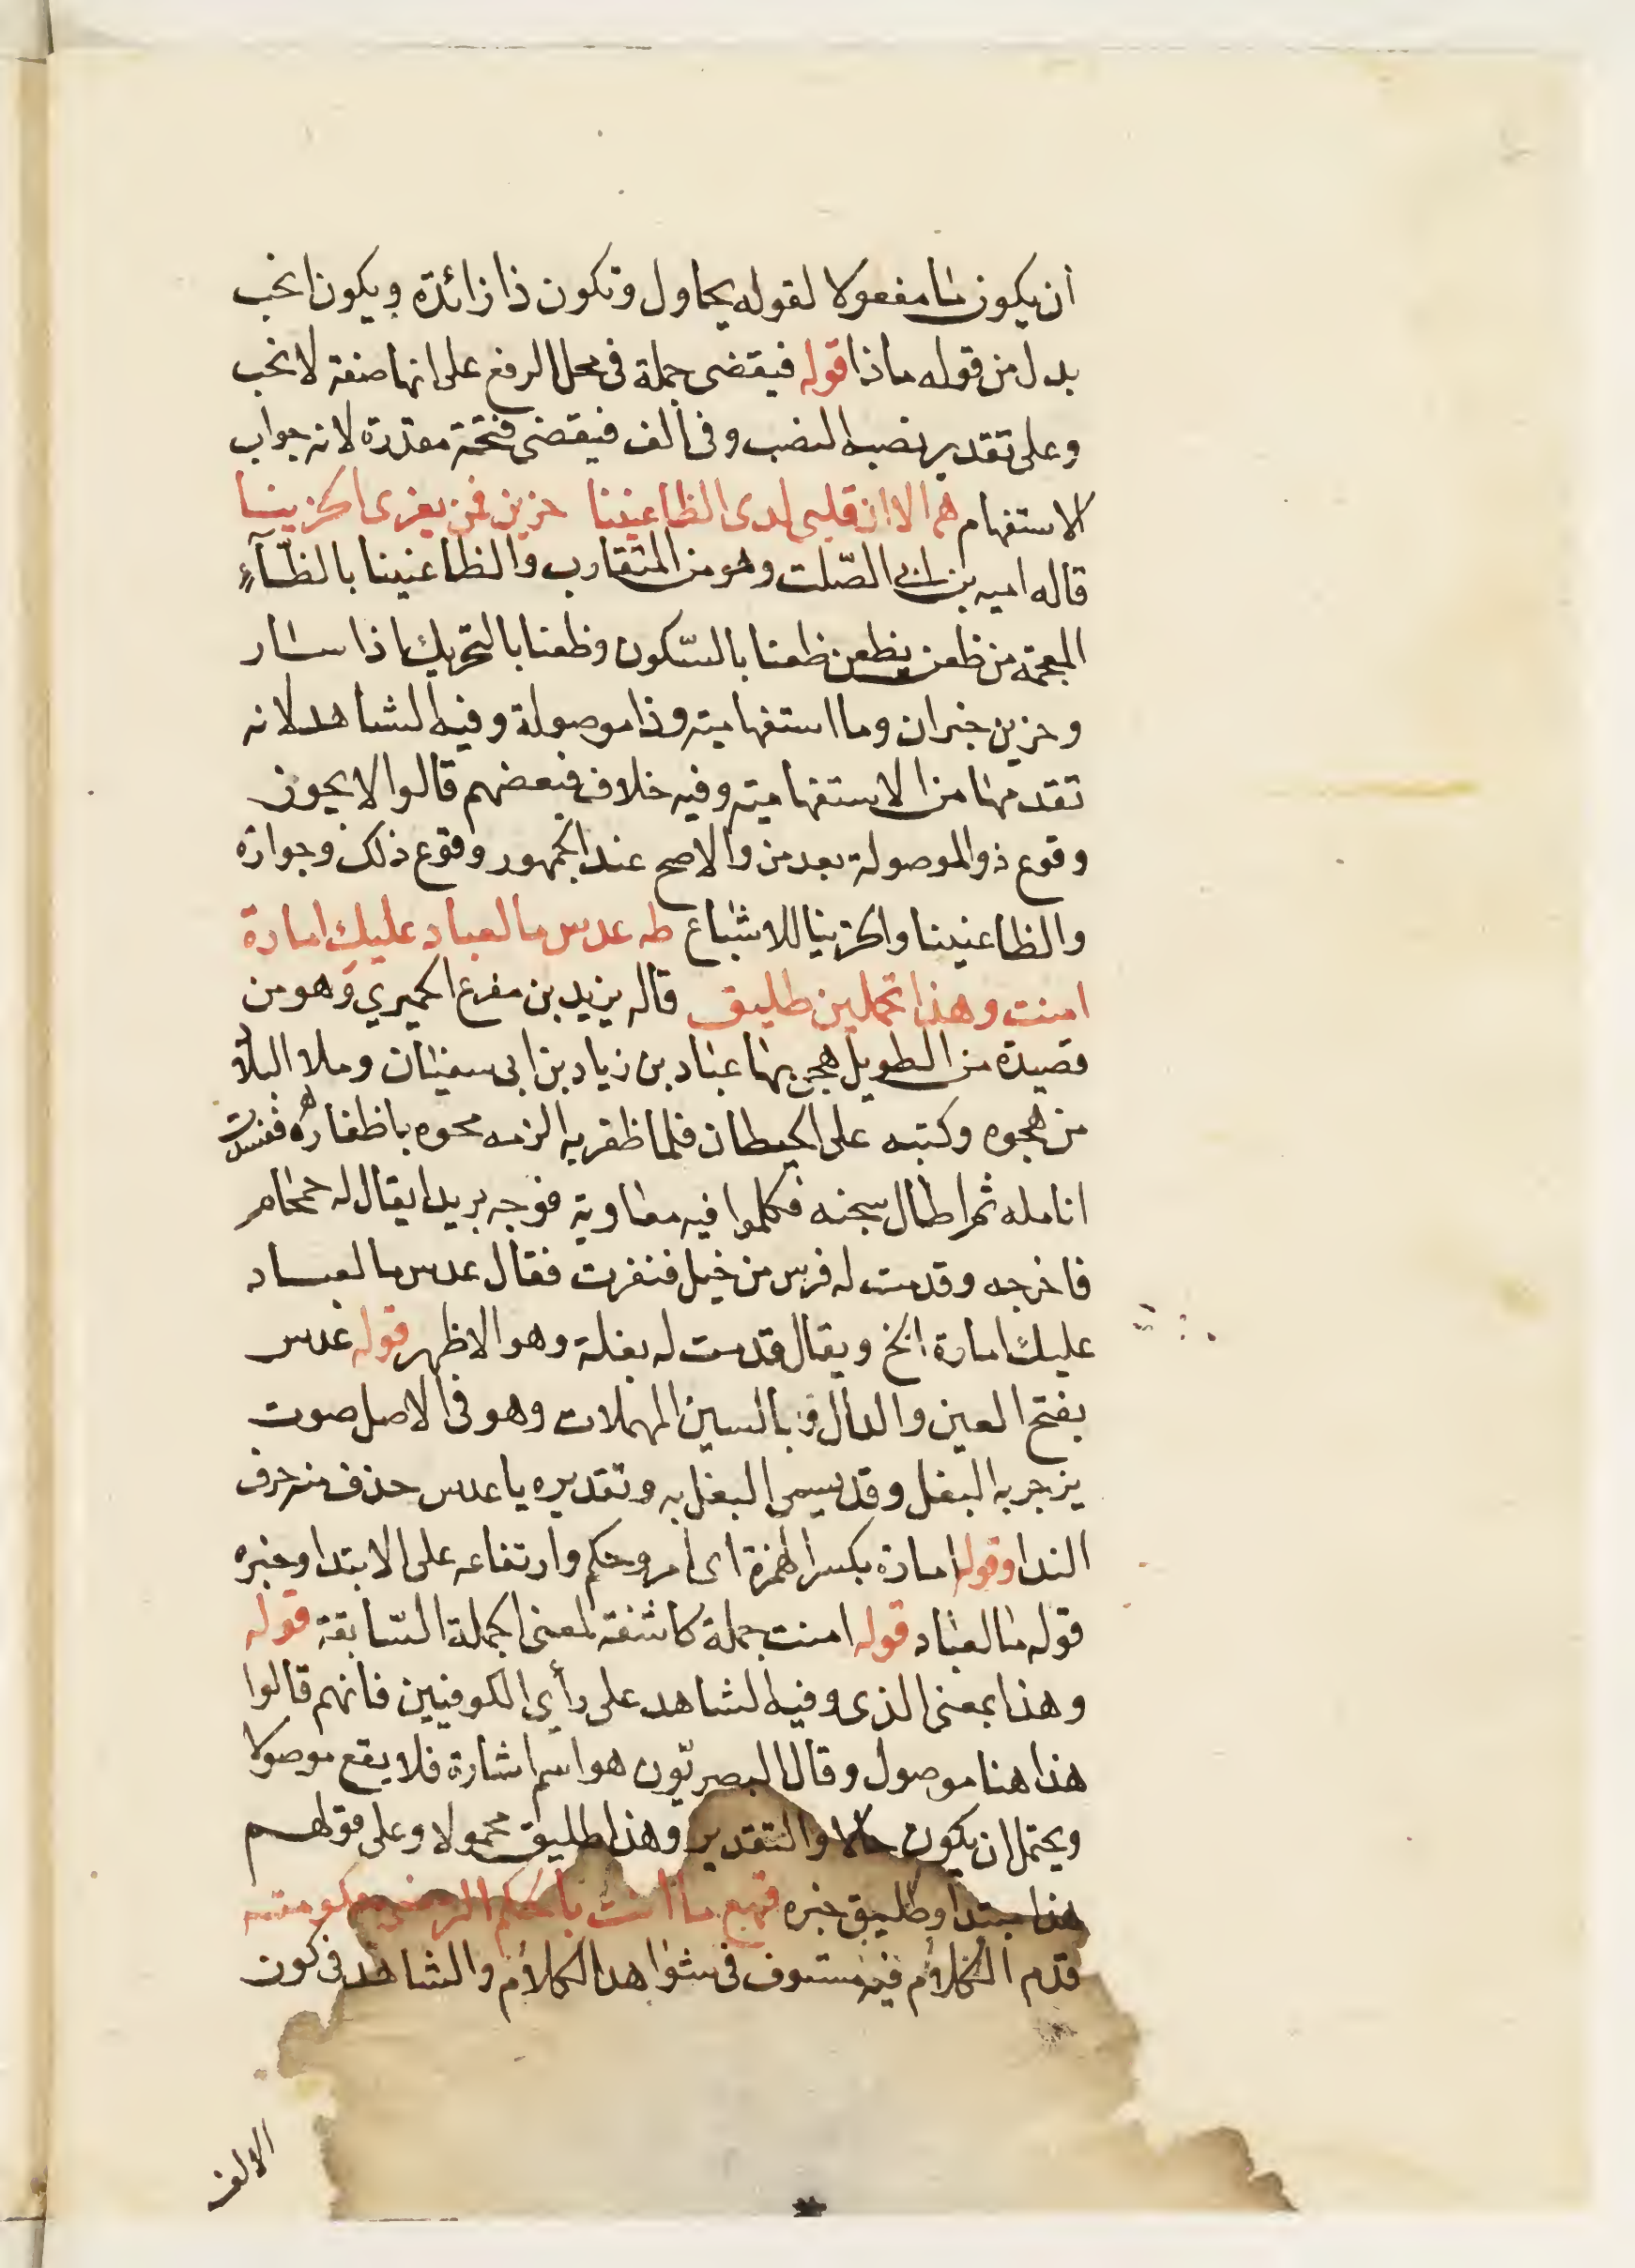 أن يكون ما مفعولا لقوله يحاول وتكون ذا زائدة ويكون انحب
بدل من قوله ماذا قوله فيقضى جملة فى محل الرفع على انها صفة لانحب
وعلى تقدير نصبه النصب وفى الف فيقضى فتحة مقدرة لانه جواب
الاستفهام هم الا ان قلبى لدى الظاعنينا حزين فمن يعزى الحزينا
قاله اميه بن ابى الصّلت وهو من المتقارب والظاعنينا بالظّآء
المعجمة من ظعن يظعن ظعنا بالسّكون وظعنا بالتحريك اذا سار
وحزين خبر ان وما استفهامية وذا موصولة وفيه الشاهد لانه
تقدمها من الاستفهامية وفيه خلاف فبعضهم قالوا لا يجوز
وقوع ذو الموصولة بعد من والاصح عند الجمهور وقوع ذلك وجوازه
والظاعنينا والحزينا للاشباع طه عدس ما لعباد عليك امارة
امنت وهذا تحملين طليق قاله يزيد بن مفرغ الحميري وهو من
قصيدة من الطويل هجى بها عباد بن زياد بن ابى سفيان وملا البلاد
من هجوه وكتبه على الحيطان فلما ظفر به الزمه محوه باظفاره ففسدت
انامله ثم اطال سجنه فكلموا فيه معاوية فوجه بريدا يقال له حمحام
فاخرجه وقدمت له فرس من خيل فنفرت فقال عدس ما لعباد
عليك امارة الخ ويقال قدمت له بغلة وهو الاظهر قوله عدس
بفتح العين والدال وبالسين المهملات وهو فى الاصل صوت
يزجر به البغل وقد يسمى البغل به وتقديره يا عدس حذف منه حرف
الندا وقوله امارة بكسر الهمزة اى امر وحكم وارتفاعه على الابتدا وخبره
قوله ما لعباد قوله امنت جملة كاشفة لمعنى الجملة السّابقة قوله
وهذا بمعنى الذى وفيه الشاهد على رأي الكوفيين فانهم قالوا
هذا هنا موصول وقال البصريّون هو اسم اشارة فلا يقع موصولا
ويحتمل ان يكون حالا والتقدير وهذا طليق محمولا وعلى قولهم
هذا مبتدأ وطليق خبره فهع ما انت بالحكم الترضى حكومته
قدم الكلام فيه مستوف فى شواهد الكلام والشاهد فى كون
الالف